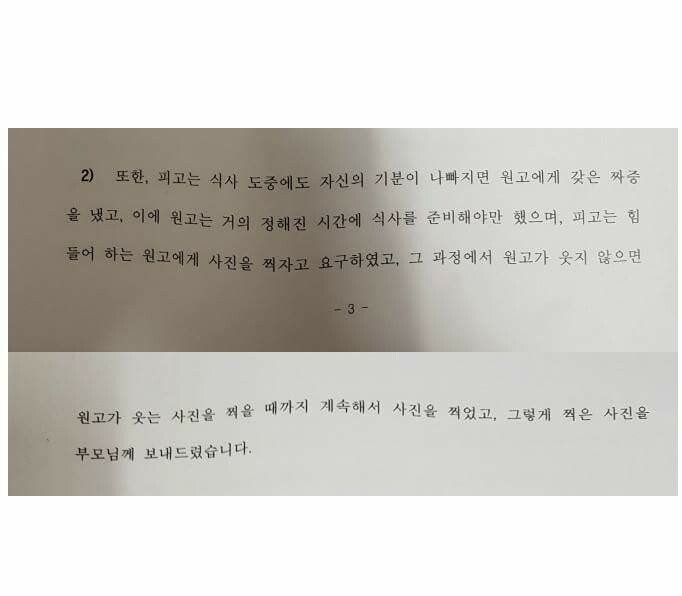 2) 또한, 피고는 식사 도중에도 자신의 기분이 나빠지면 원고에게 갖은 짜증
을 냈고, 이에 원고는 거의 정해진 시간에 식사를 준비해야만 했으며, 피고는 힘
들어 하는 원고에게 사진을 찍자고 요구하였고, 그 과정에서 원고가 웃지 않으면
- 3 -
원고가 웃는 사진을 찍을 때까지 계속해서 사진을 찍었고, 그렇게 찍은 사진을
부모님께 보내드렸습니다.